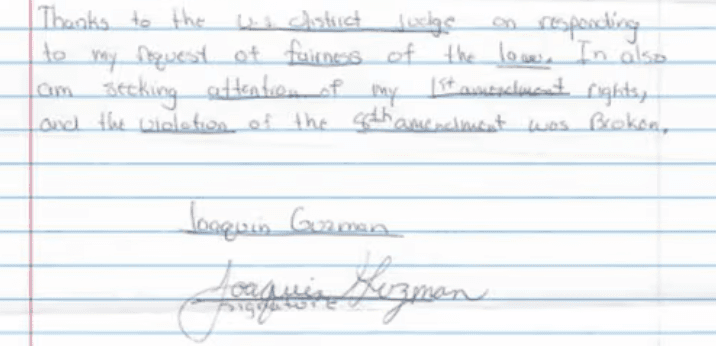 Thanks to the U.S district Judge on responding
to my request of fairness of the law. In also
am seeking attention of my 1st amendment rights,
and the violation of the 8th amendment was Broken.
Joaquin Guzman
Joaquin Guzman
signature